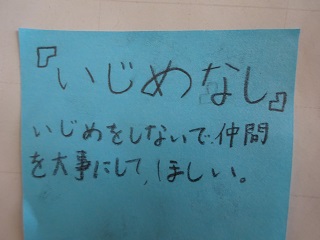 『いじめなし』
いじめをしないで仲間
を大事にして、ほしい。